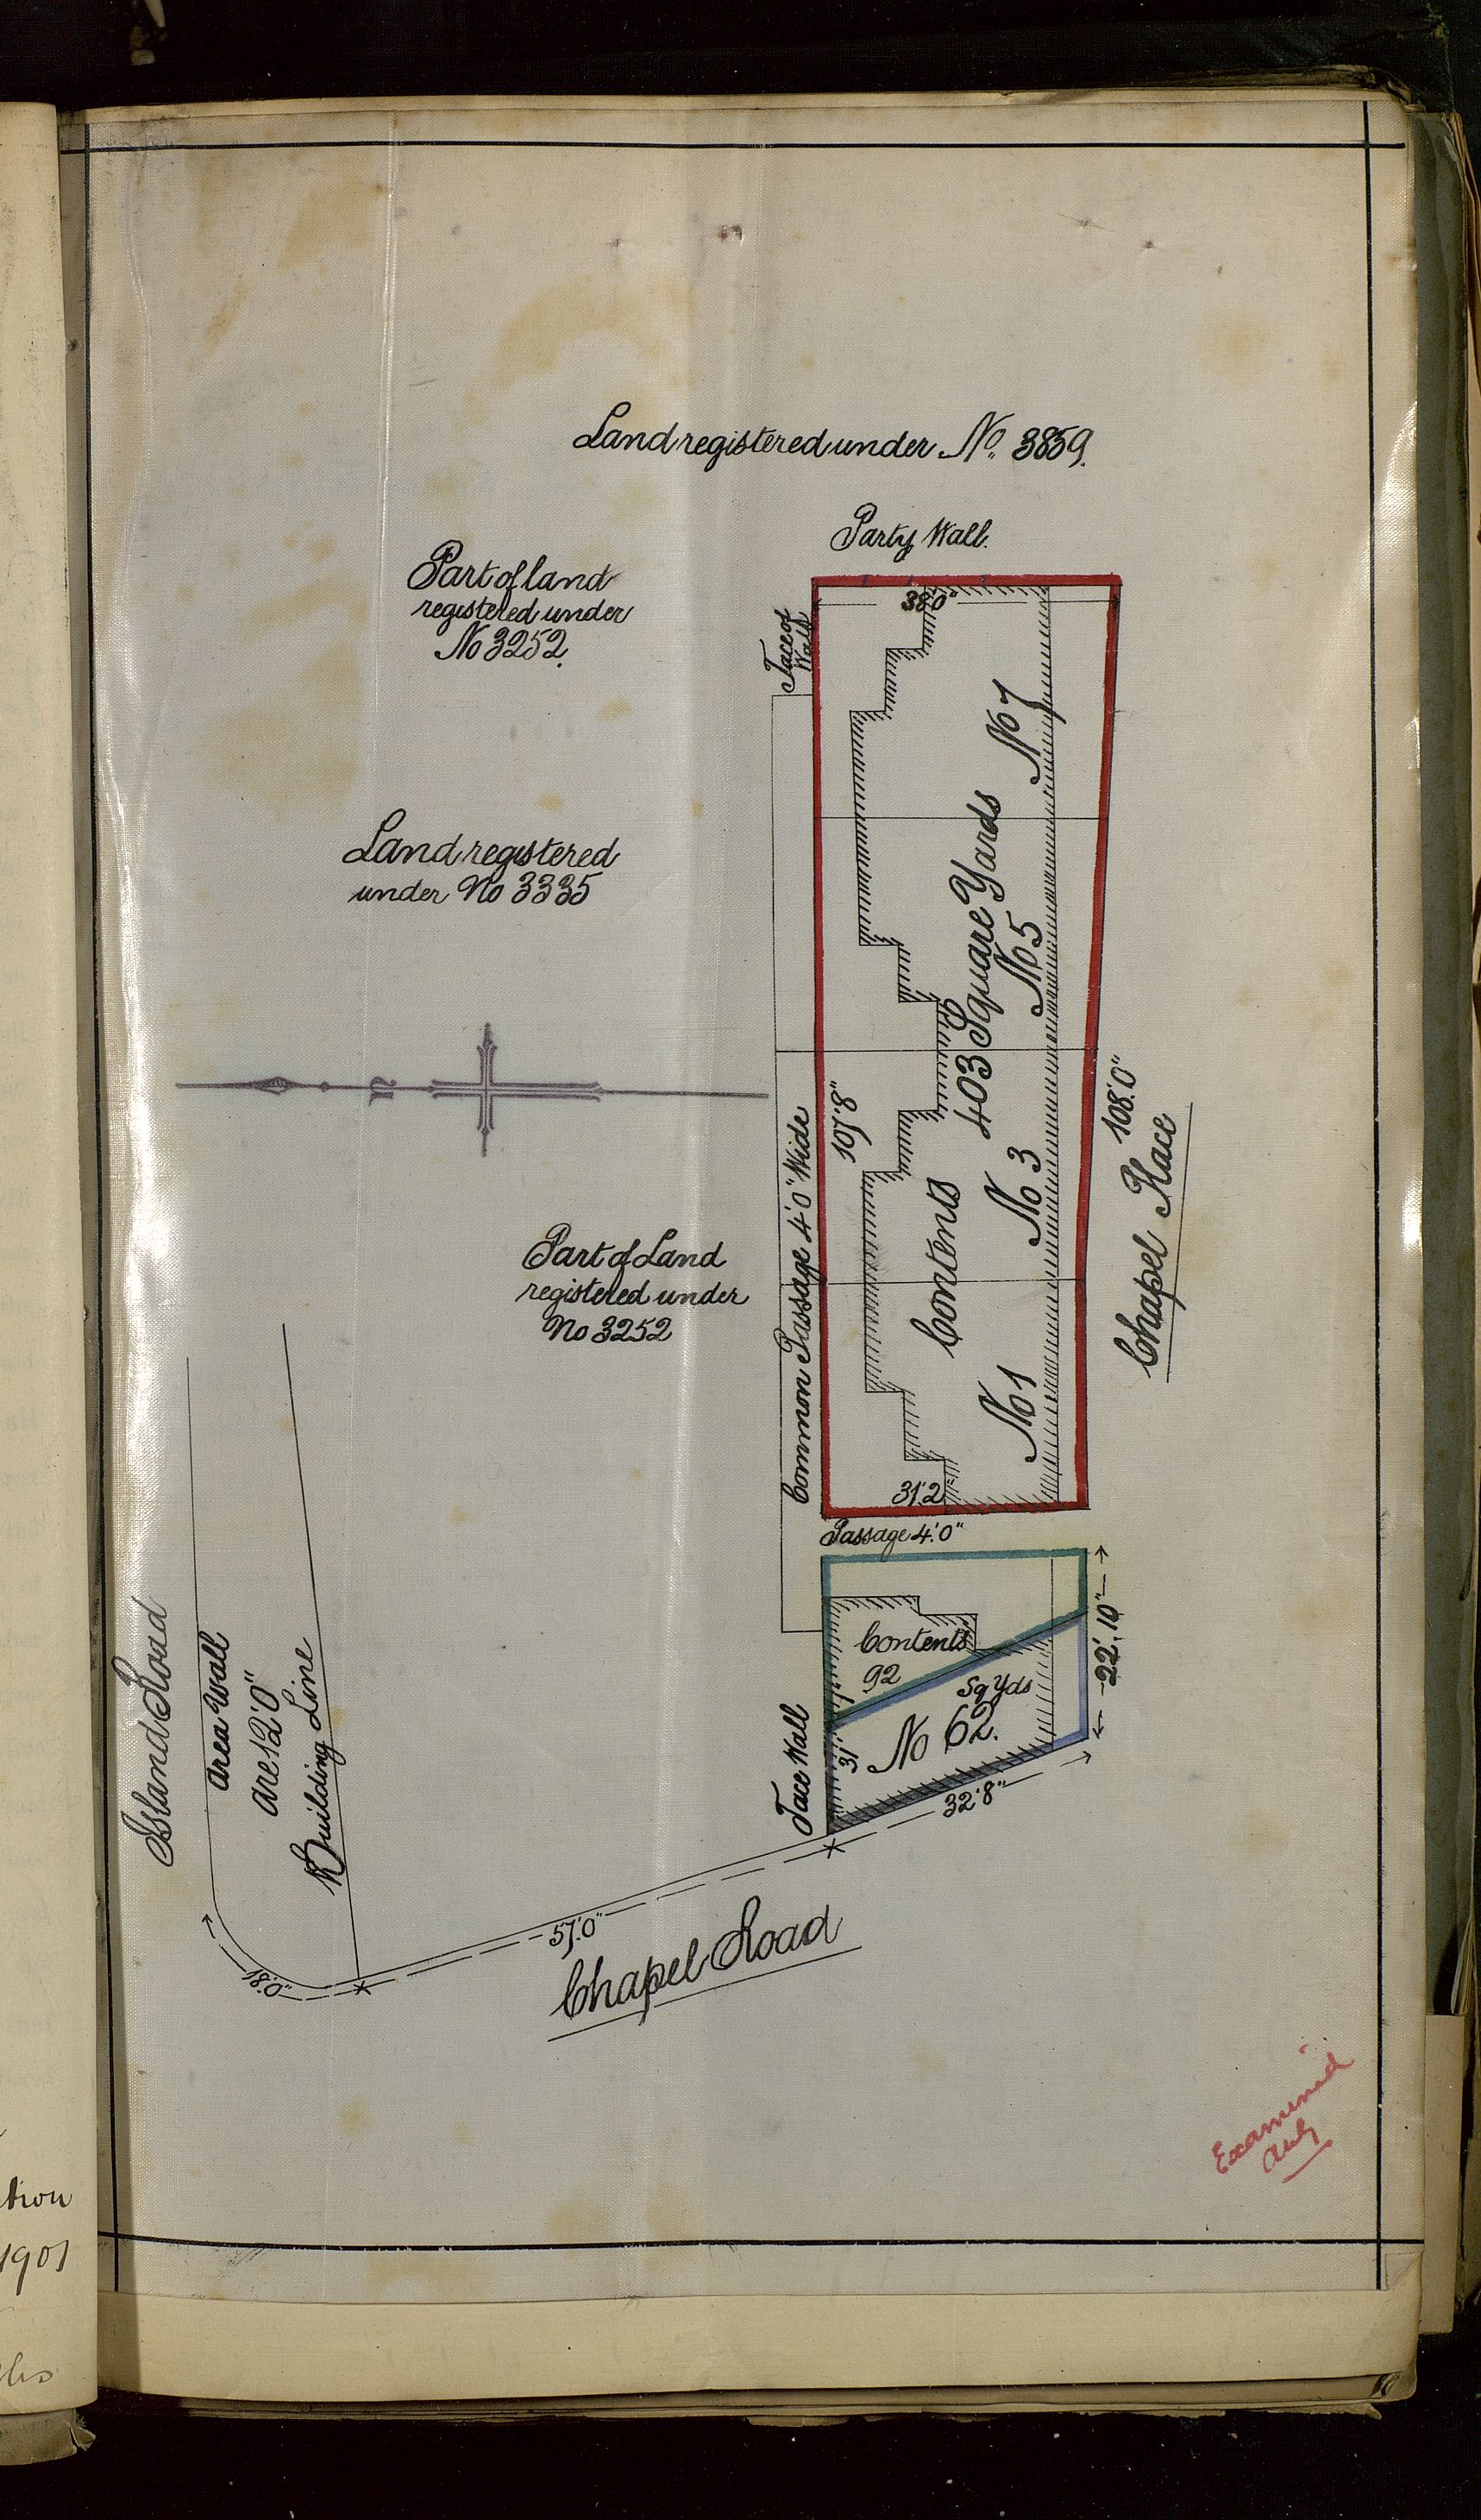 Land registered under No. 3859.
Party Wall.
Part of land
registered under
No 3252.
38'0"
Face of
Wall
No 7
Land registered
under No 3335
403 Square Yards
No 5
n
107'.8"
108'.0"
Common Passage 4'0" Wide
No 3
Contents
Chapel Place
Part of Land
registered under
No 3252
No 1
31'2"
Passage 4'.0"
Contents
92
Sq Yds
22'.10"
No 62.
31'
Face Wall
32'8"
Island Road
Area Wall
are 12'0"
Building Line
57'.0"
18'.0"
Chapel Road
Examined
tion
1901